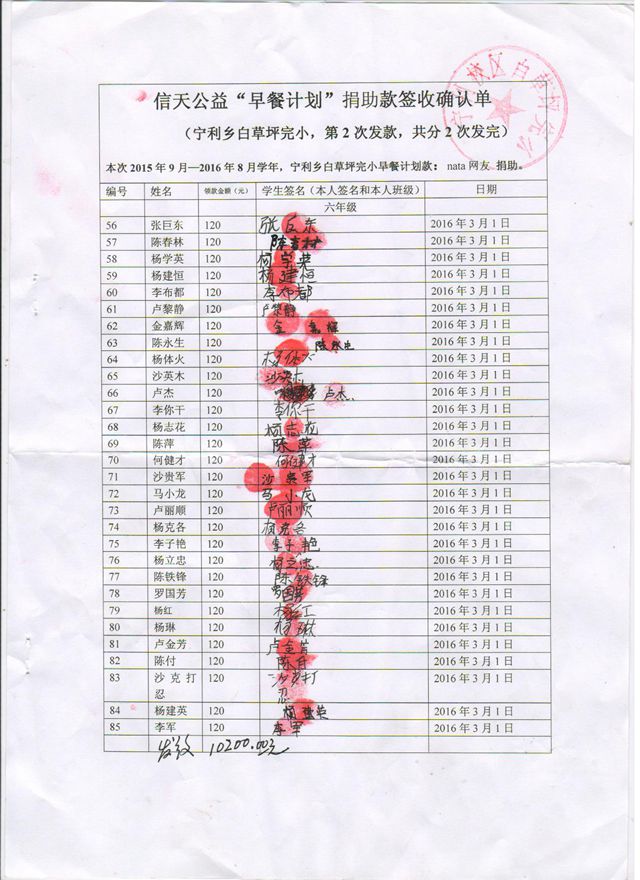 信天公益“早餐计划”捐助款签收确认单
（宁利乡白草坪完小，第 2 次发款，共分 2 次发完）
本次 2015 年 9 月—2016 年 8 月学年，宁利乡白草坪完小早餐计划款： nata 网友 捐助。
编号 姓名 领款金额（元） 学生签名（本人签名和本人班级） 日期
六年级
56 张巨东 120 张巨东 2016 年 3 月 1 日
57 陈春林 120 陈春林 2016 年 3 月 1 日
58 杨学英 120 2016 年 3 月 1 日
59 杨建恒 120 杨建恒 2016 年 3 月 1 日
60 李布都 120 李布都 2016 年 3 月 1 日
61 卢黎静 120 卢黎静 2016 年 3 月 1 日
62 金嘉辉 120 金嘉辉 2016 年 3 月 1 日
63 陈永生 120 陈永生 2016 年 3 月 1 日
64 杨体火 120 杨体火 2016 年 3 月 1 日
65 沙英木 120 沙英木 2016 年 3 月 1 日
66 卢杰 120 卢杰 2016 年 3 月 1 日
67 李你干 120 李你干 2016 年 3 月 1 日
68 杨志花 120 杨志花 2016 年 3 月 1 日
69 陈萍 120 陈萍 2016 年 3 月 1 日
70 何健才 120 何健才 2016 年 3 月 1 日
71 沙贵军 120 沙贵军 2016 年 3 月 1 日
72 马小龙 120 马小龙 2016 年 3 月 1 日
73 卢丽顺 120 卢丽顺 2016 年 3 月 1 日
74 杨克各 120 杨克各 2016 年 3 月 1 日
75 李子艳 120 李子艳 2016 年 3 月 1 日
76 杨立忠 120 杨立忠 2016 年 3 月 1 日
77 陈铁锋 120 陈铁锋 2016 年 3 月 1 日
78 罗国芳 120 罗国芳 2016 年 3 月 1 日
79 杨红 120 杨红 2016 年 3 月 1 日
80 杨琳 120 杨琳 2016 年 3 月 1 日
81 卢金芳 120 卢金芳 2016 年 3 月 1 日
82 陈付 120 陈付 2016 年 3 月 1 日
83 沙克打忍 120 沙克打忍 2016 年 3 月 1 日
84 杨建英 120 2016 年 3 月 1 日
85 李军 120 李军 2016 年 3 月 1 日
发放 10200.00元